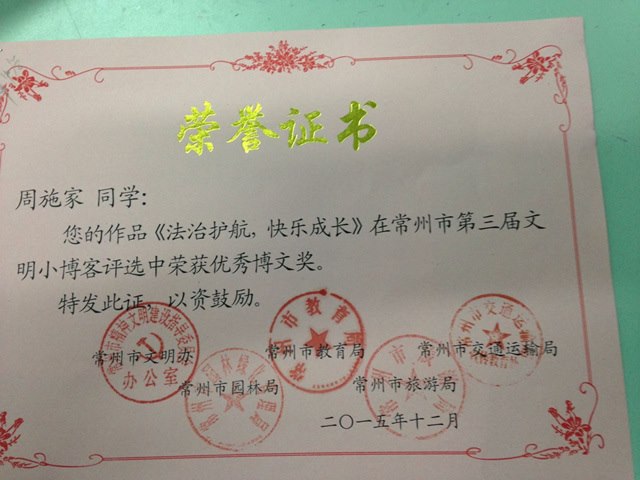 荣誉证书
周施家 同学：
您的作品《法治护航，快乐成长》在常州市第三届文
明小博客评选中荣获优秀博文奖。
特发此证，以资鼓励。
常州市文明办 常州市教育局 常州市交通运输局
常州市园林局 常州市旅游局
办公室
常州市教育局
二〇一五年十二月